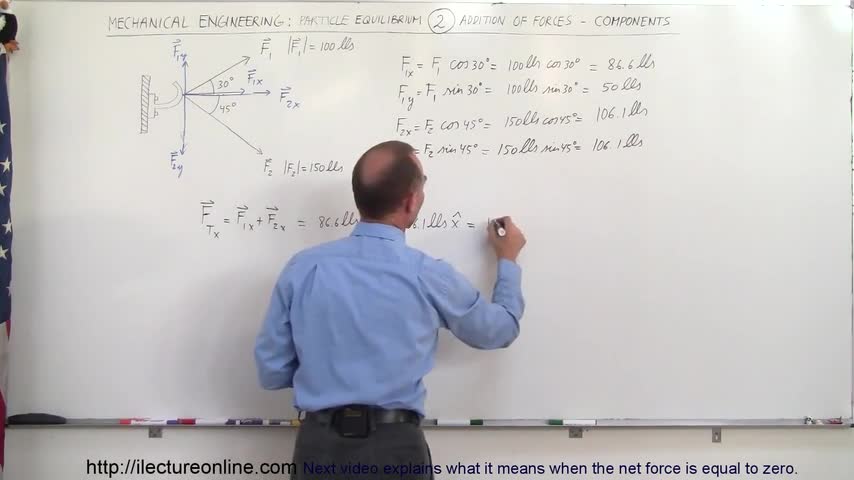 MECHANICAL ENGINEERING: PARTICLE EQUILIBRIUM ② ADDITION OF FORCES - COMPONENTS
F⃗1y F⃗1 |F⃗1| = 100 lbs
30° F⃗1x F⃗2x
45°
F⃗2y F⃗2 |F⃗2| = 150 lbs
F1x = F1 cos30° = 100 lbs cos30° = 86.6 lbs
F1y = F1 sin30° = 100 lbs sin30° = 50 lbs
F2x = F2 cos45° = 150 lbs cos45° = 106.1 lbs
= F2 sin45° = 150 lbs sin45° = 106.1 lbs
F⃗Tx = F⃗1x + F⃗2x = 86.6 lbs 6.1 lbs x̂ = 1
http://ilectureonline.com Next video explains what it means when the net force is equal to zero.